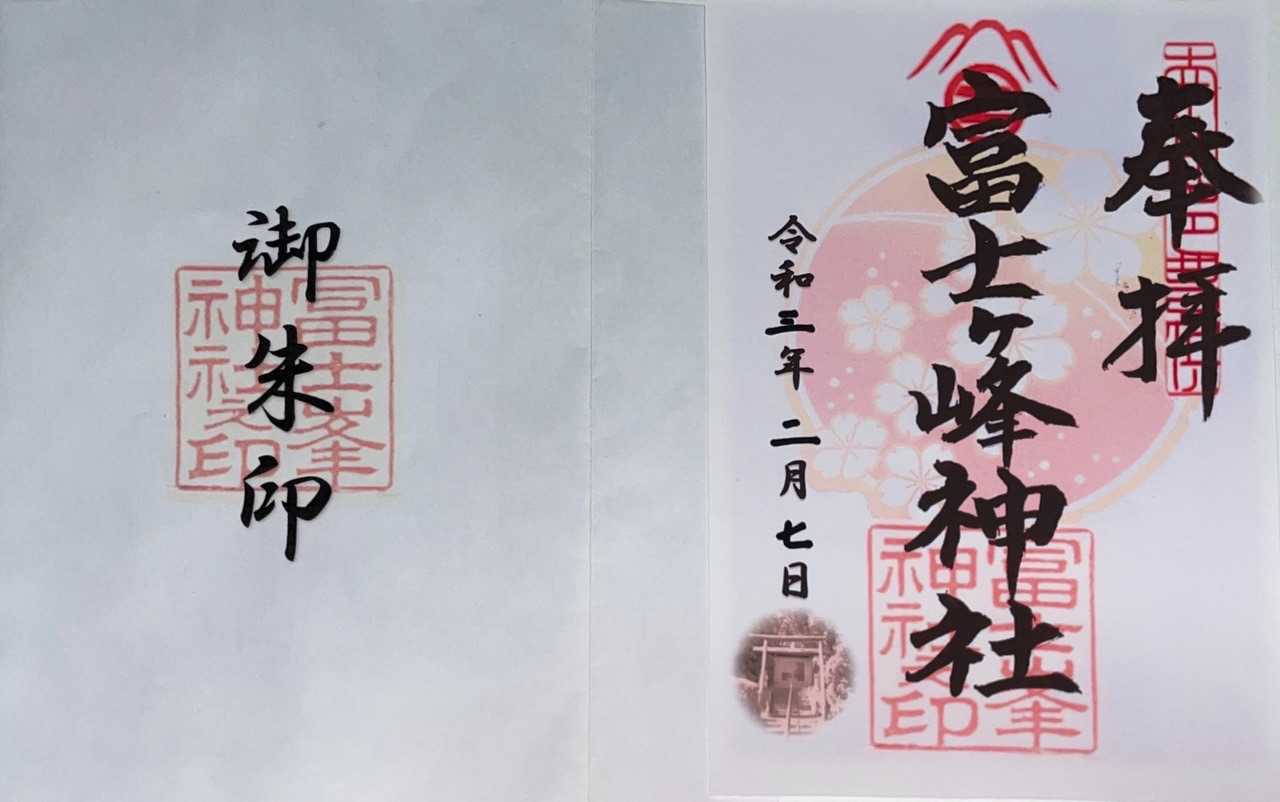 御朱印
富士峯
神社之印
奉拝
富士ヶ峰神社
令和三年 二月 七日
富士峯
神社之印